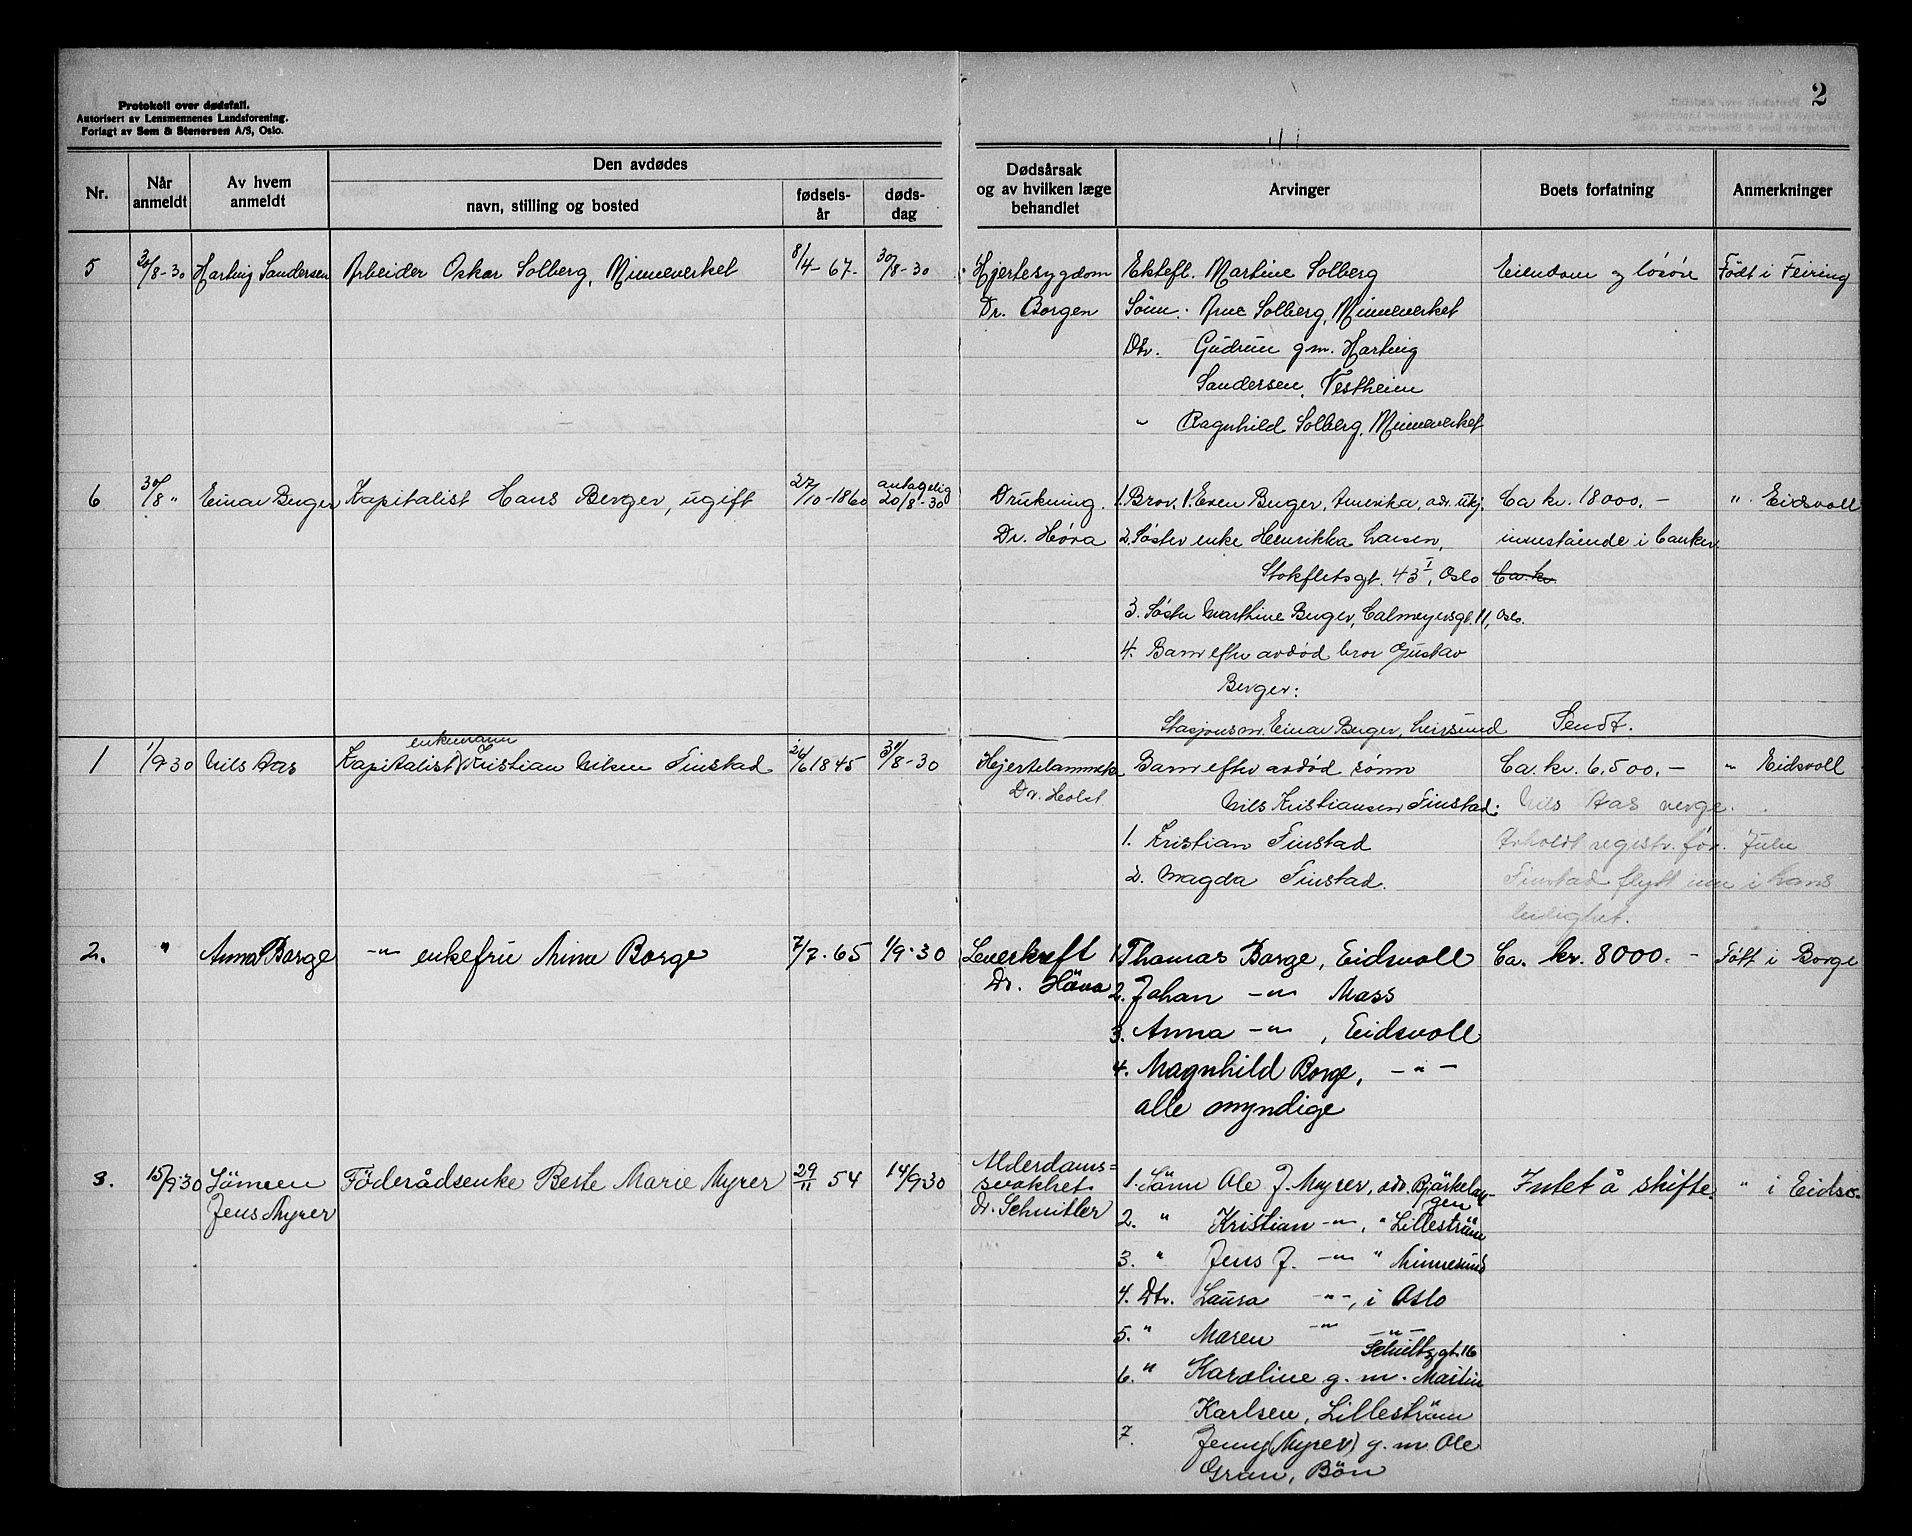 2
Protokoll over dødsfall.
Autorisert av Lensmennenes Landsforening.
Forlagt av Sem & Stenersen A/S, Oslo.
Nr.
Når anmeldt
Av hvem anmeldt
Den avdødes
navn, stilling og bosted
fødsels-år
døds-dag
Dødsårsak og av hvilken læge behandlet
Arvinger
Boets forfatning
Anmerkninger
5 30/8-30 Hartvig Sandersen Arbeider Oskar Solberg, Minneverket 8/4-67. 30/8-30 Hjertesygdom Ektefl. Martine Solberg Eiendom og løsøre Født i Feiring
Dr. Borgen Sønn. Arne Solberg, Minneverket
Dtr. Gudrun g.m. Hartvig
Sandersen, Vestheim
" Ragnhild Solberg, Minneverket
6 30/8 " Einar Berger Kapitalist Hans Berger, ugift 27/10-1860 antagelig 20/8-30 Drukning. 1. Bror. 1. Even Berger, Amerika, adr. ukj. Ca kr. 18000.- " Eidsvoll
Dr. Høva 2. Søster enke Henrikka Larsen, innestående i banker
Stokfletsgt. 43 I, Oslo Ca. kr.
3. Søster Marthine Berger, Calmeyersgt. 11, Oslo.
4. Barn efter avdød bror Gustav
Berger:
Stasjonsm. Einar Berger, Leirsund Sendt.
1 1/9 30 Nils Aas Kapitalist enkemann Kristian Nilsen Finstad 26/6 1845 31/8-30 Hjertelammelse Barn efter avdød sønn Ca. kr. 6,500.- " Eidsvoll
Dr. Holst Nils Kristiansen Finstad. Nils Aas verge.
1. Kristian Finstad Avholdt registr. for.
2. Magda Finstad. Finstad flytt inn i hans
leilighet.
2. " Anna Borge -"- enkefru Mina Borge 7/7-65 1/9-30 Leverkreft 1. Thomas Borge, Eidsvoll Ca. kr. 8000.- Født i Borge
Dr. Höva 2. Johan -"- Moss
3. Anna -"-, Eidsvoll
4. Magnhild Borge, -"-
alle myndige
3. 15/9 30 Sönnen Föderådsenke Berte Marie Myrer 29/11 54 14/9 30 Alderdoms- 1. Sönn Ole J. Myrer, adr. Bjørkelan- Intet å skifte. " i Eidsv.
Jens Myrer svakhet gen
Dr. Schnitler 2. " Kristian -"-, " Lilleström
3. " Jens J. -"- " Minnesund
4. Dtr. Laura -"-, i Oslo
5. " Maren -"- -"-
Schultzgt. 16
6. " Karoline g. m. Martin
Karlsen, Lilleström
7. Jenny (Myrer) g.m. Ole
Gran, Bön